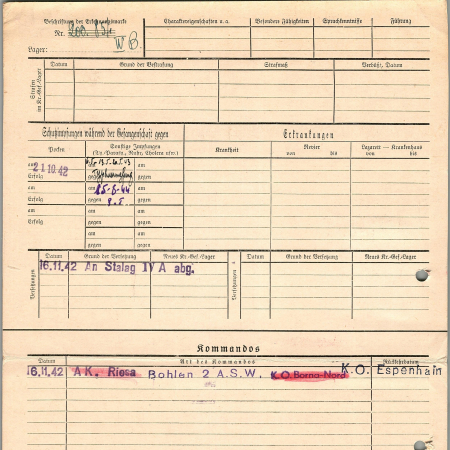 Beschriftung der Erkennungsmarke
Nr.
W B.
Lager:
Charaktereigenschaften u. a.
Besondere Fähigkeiten
Sprachkenntnisse
Führung
Strafen im Kr.-Gef.-Lager
Datum
Grund der Bestrafung
Strafmaß
Verbüßt, Datum
Schutzimpfungen während der Gefangenschaft gegen
Pocken
Sonstige Impfungen
(Ty.-Paraty., Ruhr, Cholera usw.)
Erkrankungen
Krankheit
Revier
von bis
Lazarett — Krankenhaus
von bis
am
21.10.42
Erfolg
gegen
gegen
am
Erfolg
am
15.6.44
am
gegen
gegen
am
am
am
Erfolg
gegen
gegen
am
am
gegen
gegen
Versetzungen
Datum
Grund der Versetzung
Neues Kr.-Gef.-Lager
16.11.42 An Stalag IV A abg.
Versetzungen
Datum
Grund der Versetzung
Neues Kr.-Gef.-Lager
Kommandos
Datum
Art des Kommandos
Rückkehrdatum
16.11.42 AK. Riesa Bohlen 2 A.S.W. K.O. Borna-Nord K.O. Espenhain